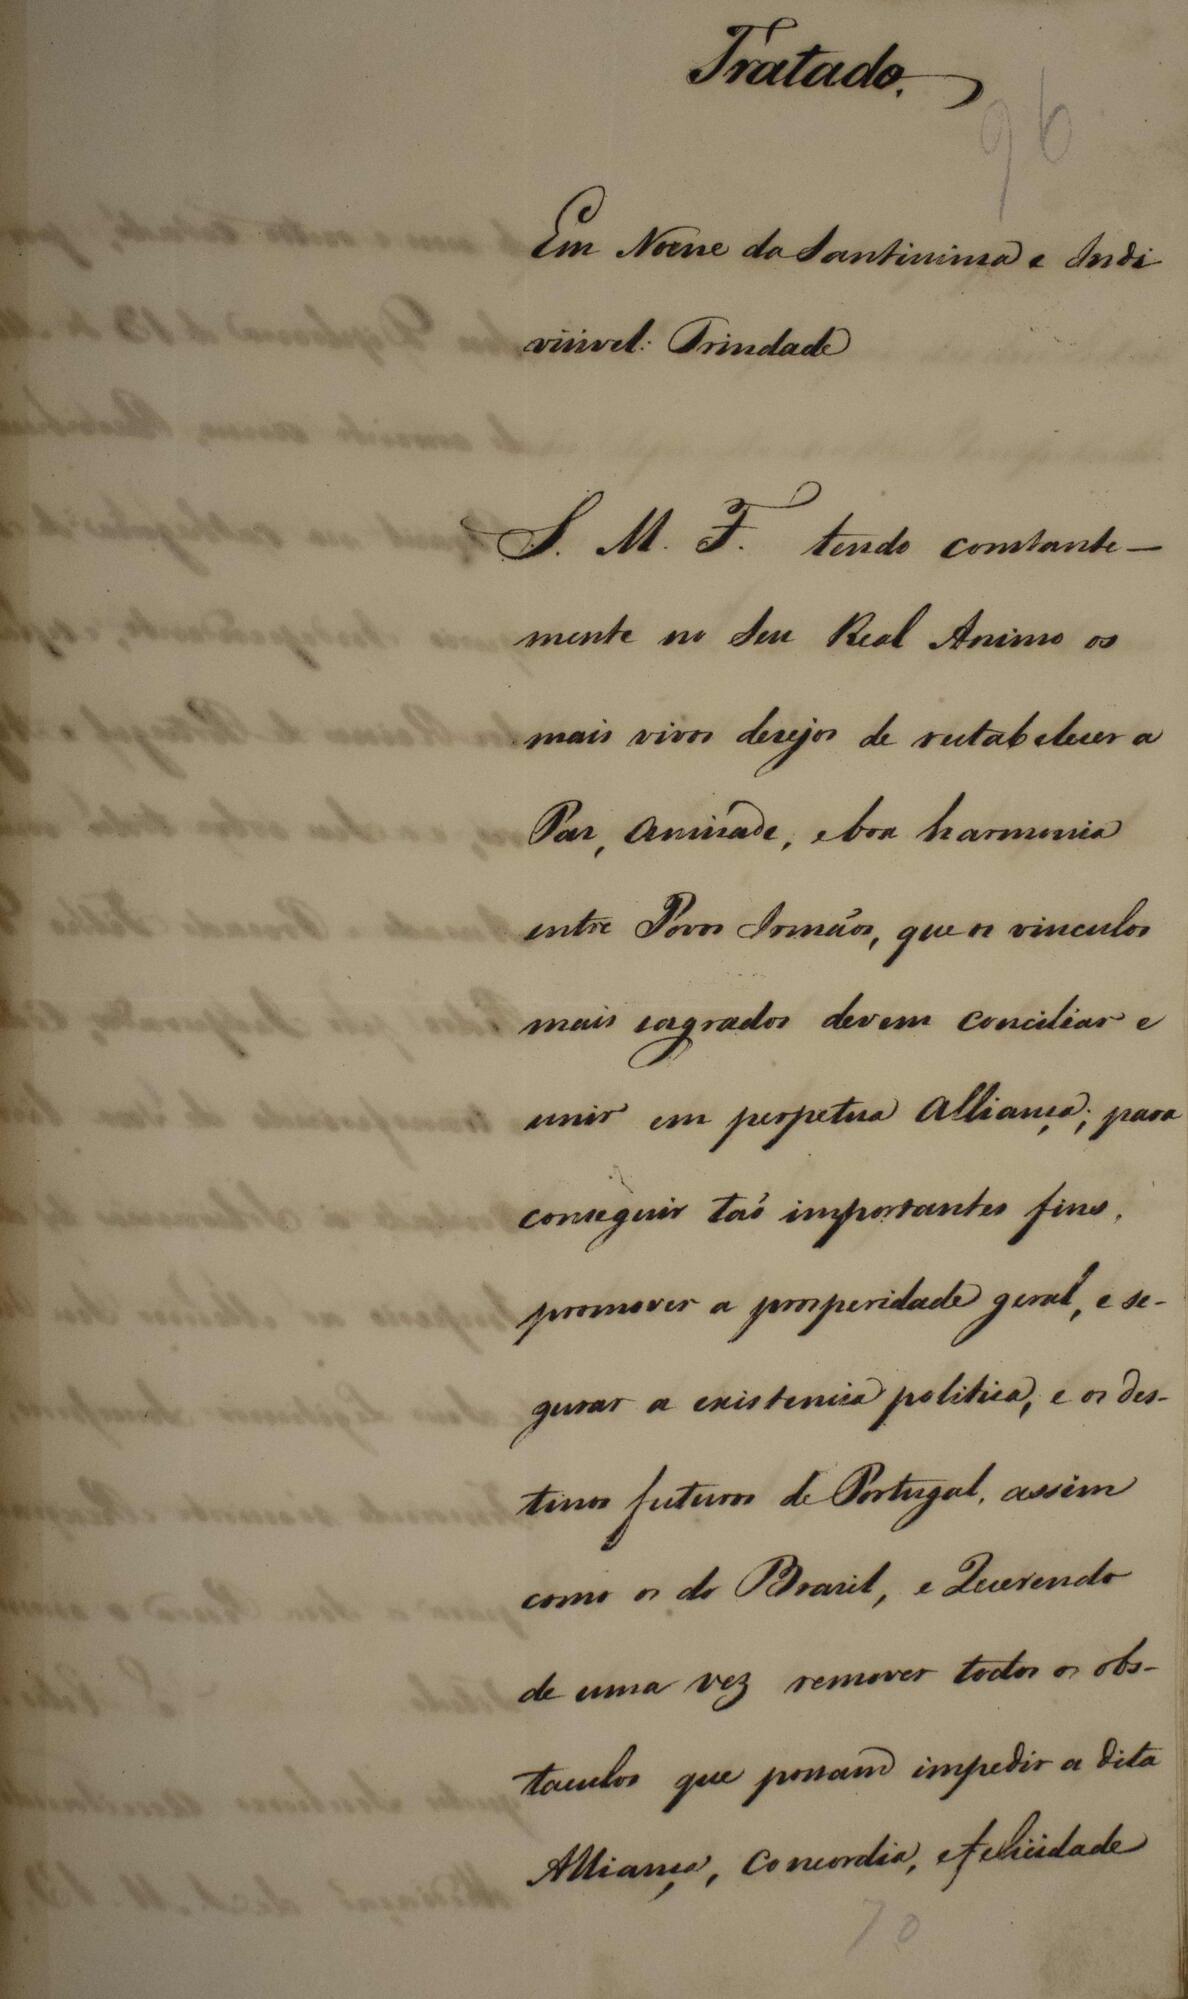 Tratado.
96
Em Nome da Santissima e Indi
visivel: Trindade
S. M. F. tendo constante-
mente no Seu Real Animo os
mais vivos desejos de restabelecer a
Paz, Amisade, e boa harmonia
entre Povos Irmãos, que os vinculos
mais sagrados devem conciliar e
unir em perpetua Alliança; para
conseguir taõ importantes fins,
promover a prosperidade geral, e se-
gurar a existencia politica, e os des-
tinos futuros de Portugal, assim
como os do Brasil, e Querendo
de uma vez remover todos os obs-
taculos que possam impedir a dita
Alliança, Concordia, e felicidade
70